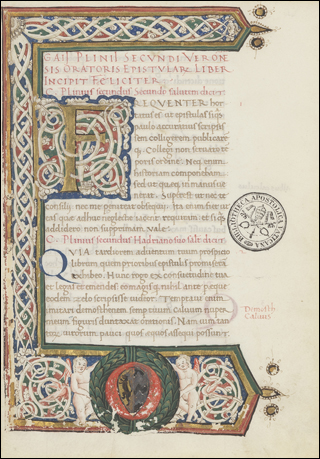 GAII PLINII SECUNDI VERONE
SIS ORATORIS EPISTULARŁ LIBER
INCIPIT FELICITER
C. Plinius secundus Secundo salutem dicit
FREQUENTER hor
tatus es ut epistulas siqu
paulo accuratius scripsis
sem colligerem publicare
q. Collegi non servato te
poris ordine. Neq enim
historiam componebam
sed ut quęq in manus ve
nerat. Superest ut nec te
consilii nec me peniteat obsequii. Ita enim fiet ut
eas que adhuc neglectę iacent requiram et siqs
addidero non supprimam. Vale
C. Plinius secundus Hadriano suo salt dicit
QVIA tardiorem adventum tuum prospicio
librum quem prioribus epistulis promiseram
exhibeo. Hunc rogo ex consuetudine tua
et legas et emendes eo magis q nihil ante peque
eodem zelo scripsisse videor. Temptavi enim
imitari demosthenem semp tuum calvum nuper
meum figuris duntaxat orationis. Nam vim tan
torum virorum pauci quos equus assequi possunt.
Demosth
Calvus
BIBLIOTHECA APOSTOLICA VATICANA